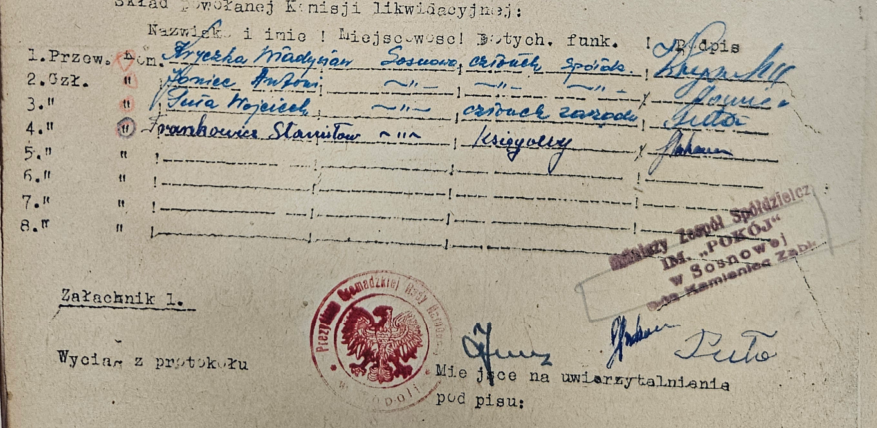 Skład powołanej Komisji likwidacyjnej:
Nazwisko i imie ! Miejscowość! Dotych. funk. ! Podpis
1. Przew. Kom. Kryczka Władysław Sosnowa członek Spółdz.
2. Czł. " Koniec Antoni -"- -"- -"- Koniec
3." " Suta Wojciech -"- członek zarządu Suta
4." " Frankowicz Stanisław -"- księgowy
5." "
6." "
7." "
8." "
Rolniczy Zespół Spółdzielczy
IM. „POKÓJ"
w Sosnowej
pow. Kamieniec Ząbk.
Załacznik 1.
Prezydium Gromadzkiej Rady Narodowej
Wyciąg z protokołu
Suta
Miejsce na uwierzytalnienia
podpisu: